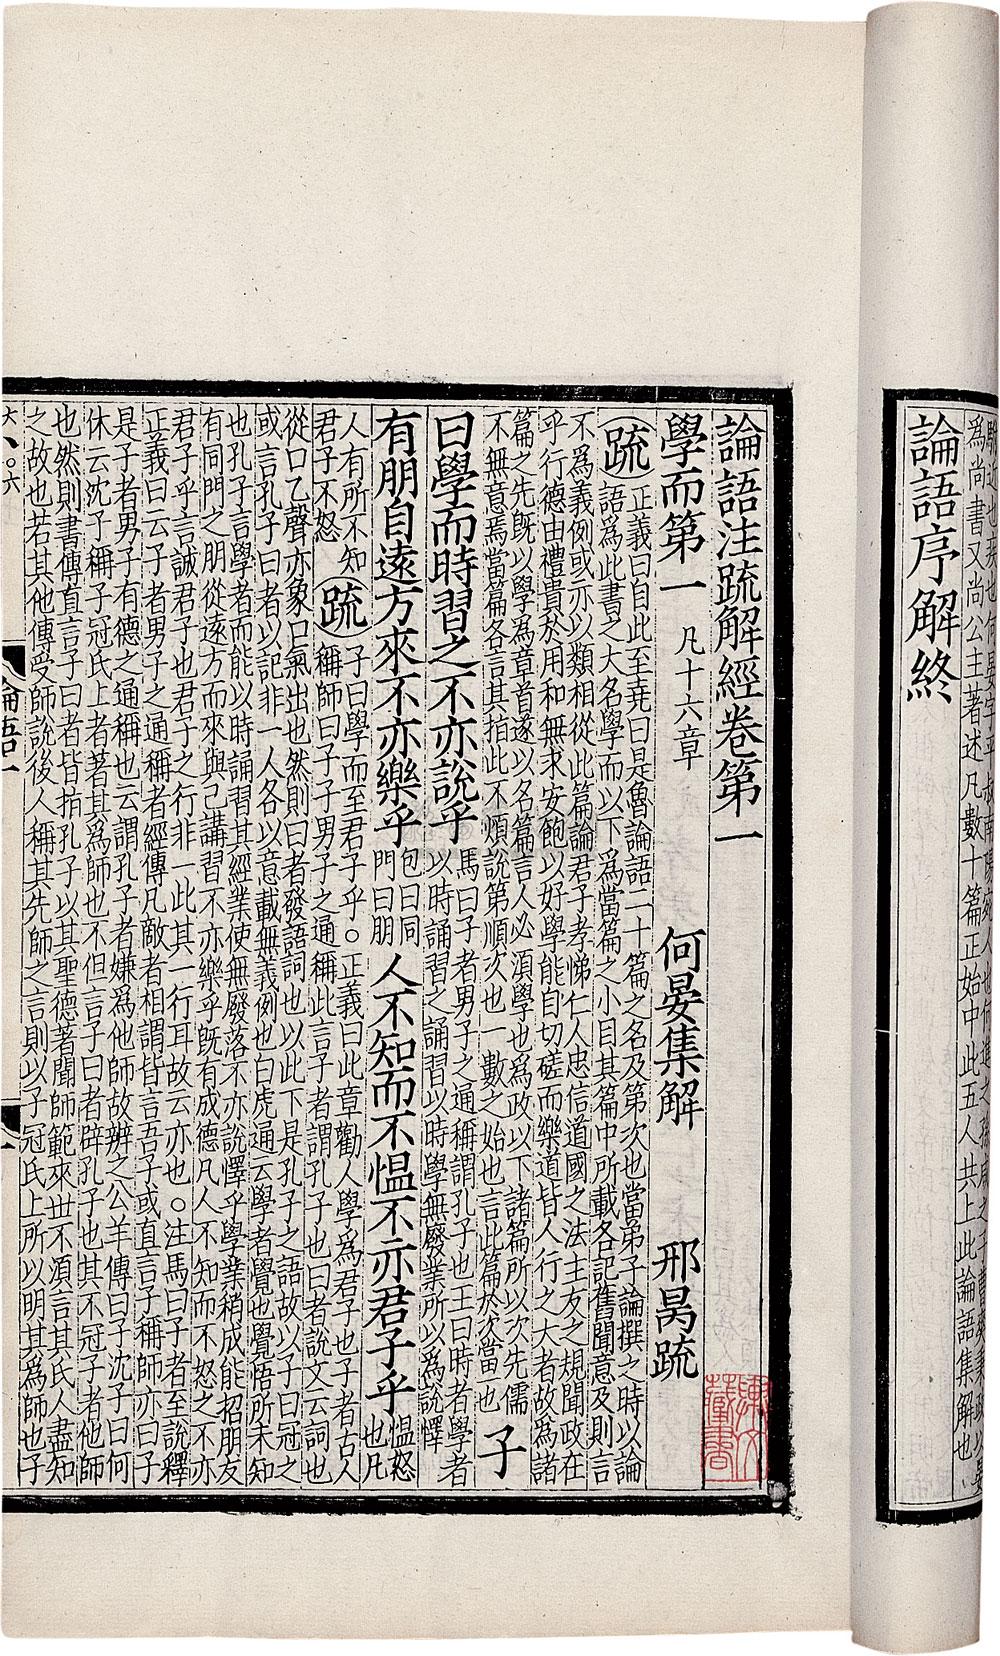 近也疾也何晏字平叔南陽宛人也何進之孫咸之子曹爽秉政以晏
爲尚書又尚公主著述凡數十篇正始中此五人共上此論語集解也
論語序解終
論語注疏解經卷第一
學而第一 凡十六章 何晏集解 邢昺疏
疏 正義曰自此至堯曰是魯論語二十篇之名及第次也當弟子論撰之時以論
語爲此書之大名學而以下爲當篇之小目其篇中所載各記舊聞意及則言
不爲義例或亦以類相從此篇論君子孝悌仁人忠信道國之法主友之規聞政在
乎行德由禮貴於用和無求安飽以好學能自切磋而樂道皆人行之大者故爲諸
篇之先旣以學爲章首遂以名篇言人必須學也爲政以下諸篇所以次先儒
不無意焉當篇各言其指此不煩說第順次也一數之始也言此篇於次當一也 子
曰學而時習之不亦說乎 馬曰子者男子之通稱謂孔子也王曰時者學者
以時誦習之誦習以時學無廢業所以爲說懌
有朋自遠方來不亦樂乎 包曰同
門曰朋 人不知而不慍不亦君子乎 慍怒
也凡
人有所不知
君子不怒 疏 子曰學而至君子乎○正義曰此章勸人學爲君子也子者古人
稱師曰子子男子之通稱此言子者謂孔子也曰者說文云詞也
從口乙聲亦象口氣出也然則曰者發語詞也以此下是孔子之語故以子曰冠之
或言孔子曰者以記非一人各以意載無義例也白虎通云學者覺也覺悟所未知
也孔子言學者而能以時誦習其經業使無廢落不亦說懌乎學業稍成能招朋友
有同門之朋從遠方而來與己講習不亦樂乎旣有成德凡人不知而不怒之不亦
君子乎言誠君子也君子之行非一此其一行耳故云亦也○注馬曰子者至說釋
正義曰云子者男子之通稱者經傳凡敵者相謂皆言吾子或直言子稱師亦曰子
是子者男子有德之通稱也云謂孔子者嫌爲他師故辨之公羊傳曰子沈子曰何
休云沈子稱子冠氏上者著其爲師也不但言子曰者辟孔子也其不冠子者他師
也然則書傳直言子曰者皆指孔子以其聖德著聞師範來世不須言其氏人盡知
之故也若其他傳受師說後人稱其先師之言則以子冠氏上所以明其爲師也子
論語一